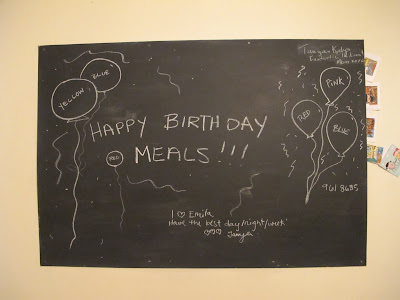 BLUE
YELLOW
PINK
RED
BLUE
HAPPY BIRTHDAY
MEALS!!!
RED
961 8685
I ♡ Emila
Have the best day/night/week!
♡♡♡